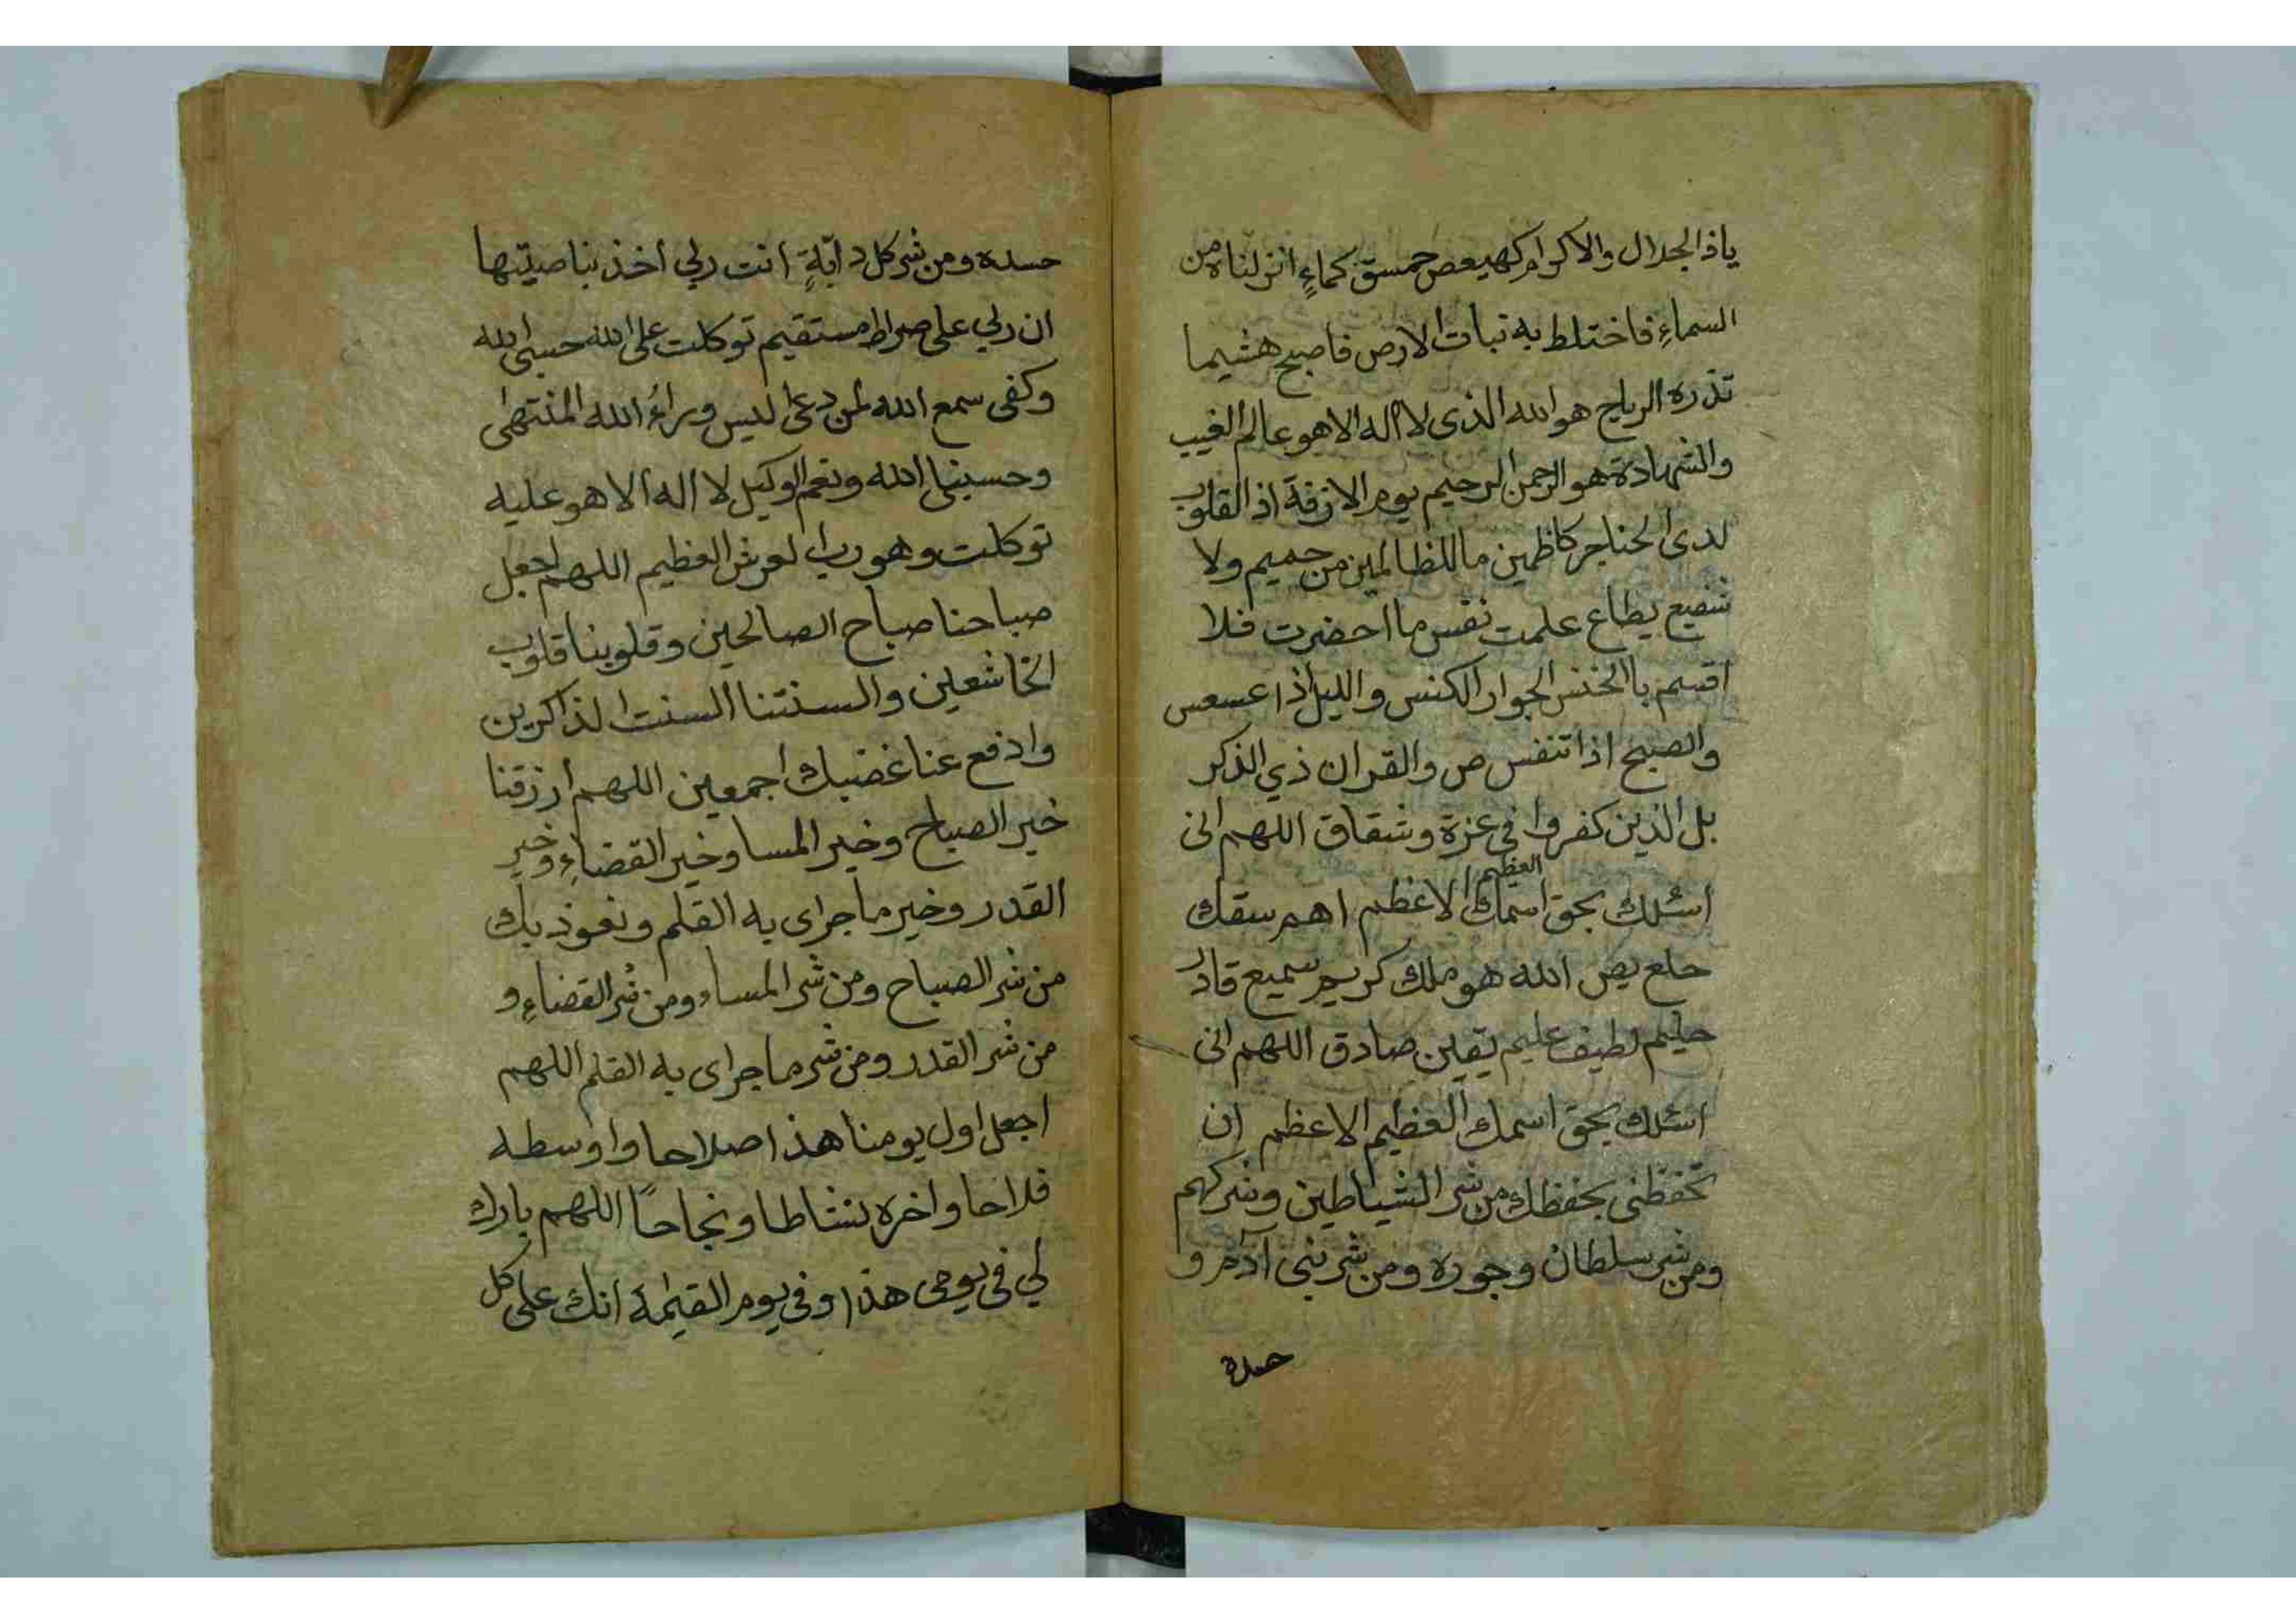 ياذالجلال والاكرام كهيعص حمسق كماءٍ انزلناه من
السماءِ فاختلط به نبات الارض فاصبح هشيما
تذره الرياح هو الله الذى لا اله الا هو عالم الغيب
والشهادة هو الرحمن الرحيم يوم الازفة اذ القلوب
لدى الحناجر كاظمين ما للظالمين من حميم ولا
شفيع يطاع علمت نفس ما احضرت فلا
اقسم باالخنس الجوار الكنس والليل اذا عسعس
والصبح اذا تنفس ص والقران ذي الذكر
بل الذين كفروا فى عزة وشقاق اللهم انى
اسئلك بحق اسمك العظيم الاعظم اهم سقك
حلع يص الله هو ملك كريم سميع قادر
حليم لطيف عليم يقين صادق اللهم انى
اسئلك بحق اسمك العظيم الاعظم ان
تحفظنى بحفظك من شر الشياطين وشركهم
ومن شر سلطان وجوره ومن شر بنى آدم و
حسده
حسده ومن شر كل دابّةٍ انت ربي اخذ بناصيتها
ان ربي على صراط مستقيم توكلت على الله حسبى الله
وكفى سمع الله لمن دعى ليس وراءُ الله المنتهى
وحسبنا الله ونعم الوكيل لا اله الا هو عليه
توكلت وهو رب العرش العظيم اللهم اجعل
صباحنا صباح الصالحين وقلوبنا قلوب
الخاشعين والسنتنا السنت الذاكرين
وادفع عنا غضبك اجمعين اللهم ارزقنا
خير الصباح وخير المسا وخير القضاءِ وخير
القدر وخير ما جراى به القلم ونعوذ بك
من شر الصباح ومن شر المساء ومن شر القضاءِ و
من شر القدر ومن شر ما جراى به القلم اللهم
اجعل اول يومنا هذا صلاحا واوسطه
فلاحا واخره نشاطا ونجاحاً اللهم بارك
لي فى يومى هذا وفى يوم القيٰمة انك على كل